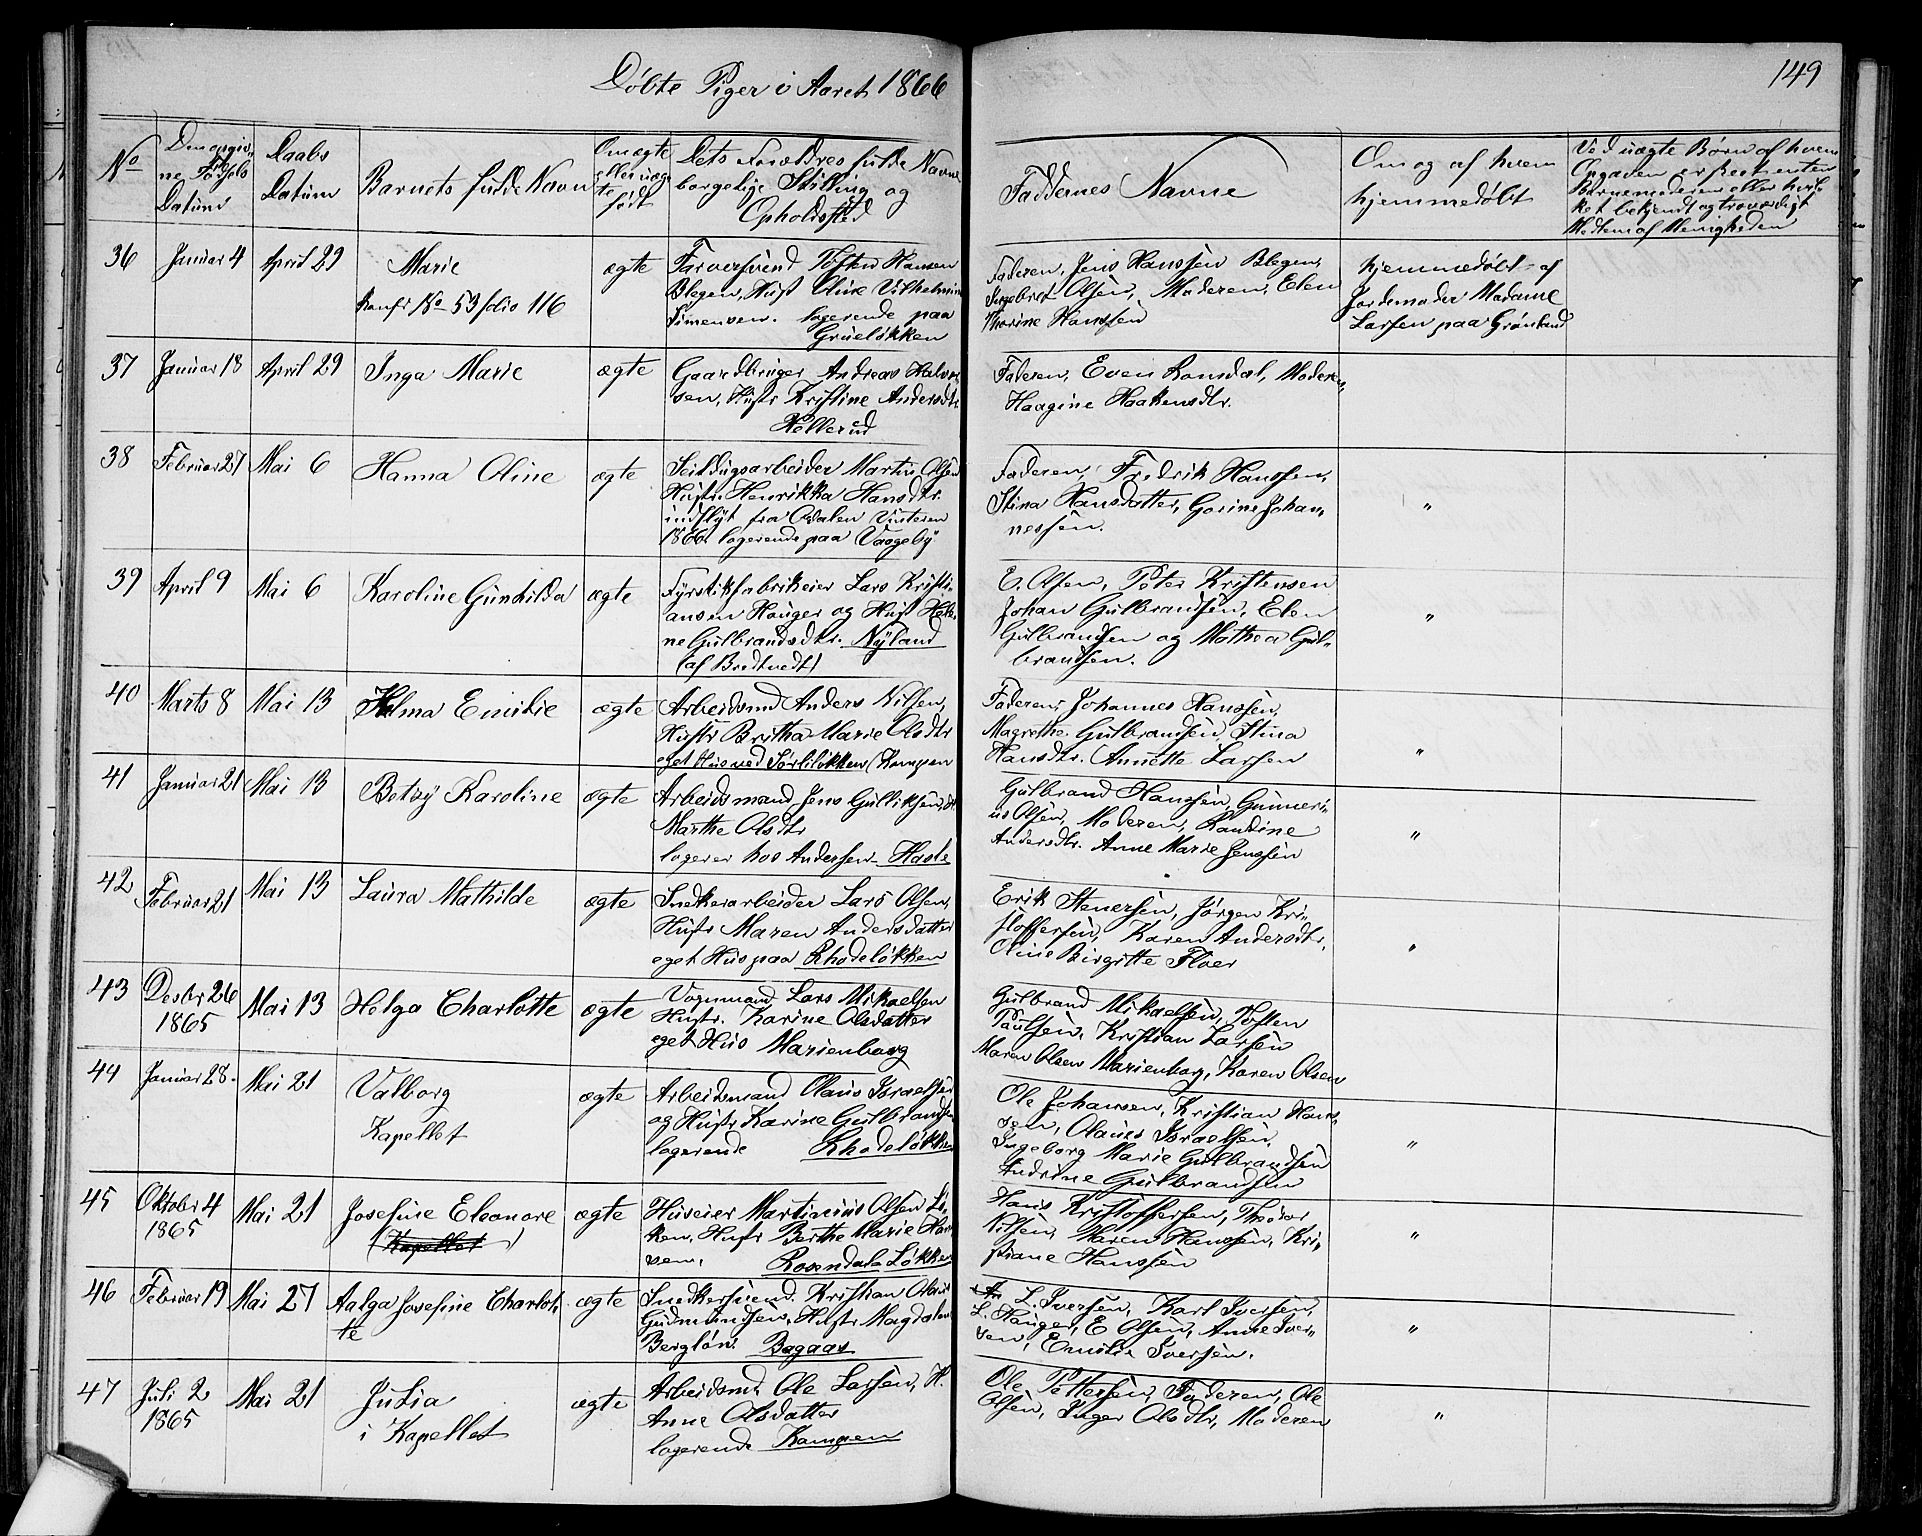 Døbte Piger i Aaret 1866
149
No
Den opgiv-
ne Fødsels
Datum
Daabs
Datum
Barnets fulde Navn
Om ægte
eller uæg-
te
født
Dets Forældres fulde Navne
borgelige Stilling og
Opholdssted
Faddernes Navne
Om og af hvem
hjemmedøbt
Ved uægte Børn af hvem
Opgaven er
Barnemoderen eller hvil-
ket bekjendt og troværdigt
Medlem af Menigheden
36 Januar 4 April 29 Marie ægte
Konfr No 53 folio 116
Farversvend Hansen
Blegen, Hust Oline Vilhelmine
Simensen. logerende paa
Grueløkken
Faderen, Jens Hanssen Blegen,
Ingebret Olsen, Moderen, Elen
Thorine Hanssen
hjemmedøbt af
Jordemoder Madame
Larsen paa Grønland
37 Januar 18 April 29 Inga Marie ægte
Gaardbruger Andreas Halvor-
sen, Hustr Kristine Andersdtr
Hellerud
Faderen, Even Moderen,
Haagine Haakensdtr.
38 Februar 27 Mai 6 Hanna Oline ægte
Seildugsarbeider Martin Olsen
Hustr. Henrikka Hansdtr.
indflyt fra Odalen Vinteren
1866 logerende paa Vaageby
Faderen, Fredrik Hanssen,
Stina Hansdatter, Gorine Johan-
nessen.
"
39 April 9 Mai 6 Karoline Gunhilda ægte
Fyrstikfabrikeier Lars Kristi-
ansen Hauger og Hust Hele-
ne Gulbrandsdtr. Nyland
(af Bredtvedt)
E. Olsen, Peter Kristensen
Johan Gulbrandsen, Elen
Gulbrandsen og Mathea Gul-
brandsen.
"
40 Marts 8 Mai 13 Hilma Emilie ægte
Arbeidsmd Anders Nilsen,
Hustr Bertha Marie Olsdtr
eget Hus ved Sørliløkken (Kampen
Faderen, Johannes Hanssen,
Magrethe Gulbrandsen, Stina
Hansdtr. Annette Larsen
"
41 Januar 21 Mai 13 Betsy Karoline ægte
Arbeidsmand Jens Gulliksen, H.
Marthe Olsdtr
logerer hos Andersen Hasle
Gulbrand Hanssen, Gunneri-
us Olsen, Moderen, Randine
Andersdtr. Anne Marie Jenssen
"
42 Februar 21 Mai 13 Laura Mathilde ægte
Snedkerarbeider Lars Olsen,
Hustr Maren Andersdatter
eget Hus paa Rhodeløkken
Erik Stenersen, Jørgen Kri-
stoffersen, Karen Andersdtr,
Oline Birgitte Floer
"
43 Desbr 26 Mai 13 Helga Charlotte ægte
1865
Vognmand Lars Mikaelsen
Hustr. Karine Olsdatter
eget Hus Marienborg
Gulbrand Mikaelsen, Tosten
Paulsen, Kristian Larsen
Maren Olsen Marienborg, Karen Olsen
44 Januar 28. Mai 21 Valborg ægte
Kapellet
Arbeidsmand Olaus Israelsen
og Hustr Karine Gulbrandsen
logerende Rhodeløkken
Ole Johansen, Kristian Hans-
sen, Olaus Israelsen,
Ingeborg Marie Gulbrandsen
Andrine Gulbrandsen
"
45 Oktober 4 Mai 21 Josefine Eleonore ægte
1865 (Kapellet)
Huseier Martinius Olsen Løk-
ken, Hustr Berthe Marie Han-
sen, Rosendals Løkken
Hans Kristoffersen, Theodor
Nilsen, Maren Hanssen, Kri-
stiane Hanssen
"
46 Februar 19 Mai 27 Aalga Josefine Charlot- ægte
te
Snedkersvend Kristian Olaus
Gudmundsen, Hustr Magdalene
Bergløv. Bagaas
L. Iversen, Karl Iversen,
L. Hauger, E Olsen, Anne Iver-
sen, Emilie Iversen.
"
47 Juli 2 Mai 21 Julia ægte
1865 i Kapellet
Arbeidsmd Ole Larsen, H.
Anne Olsdatter
logerende Kampen
Ole Pettersen, Faderen, Ole
Olsen, Inger Olsdtr, Moderen
"